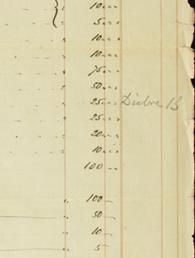 10
5
10
10
75
50
25
25
20
10
100
100
50
10
5